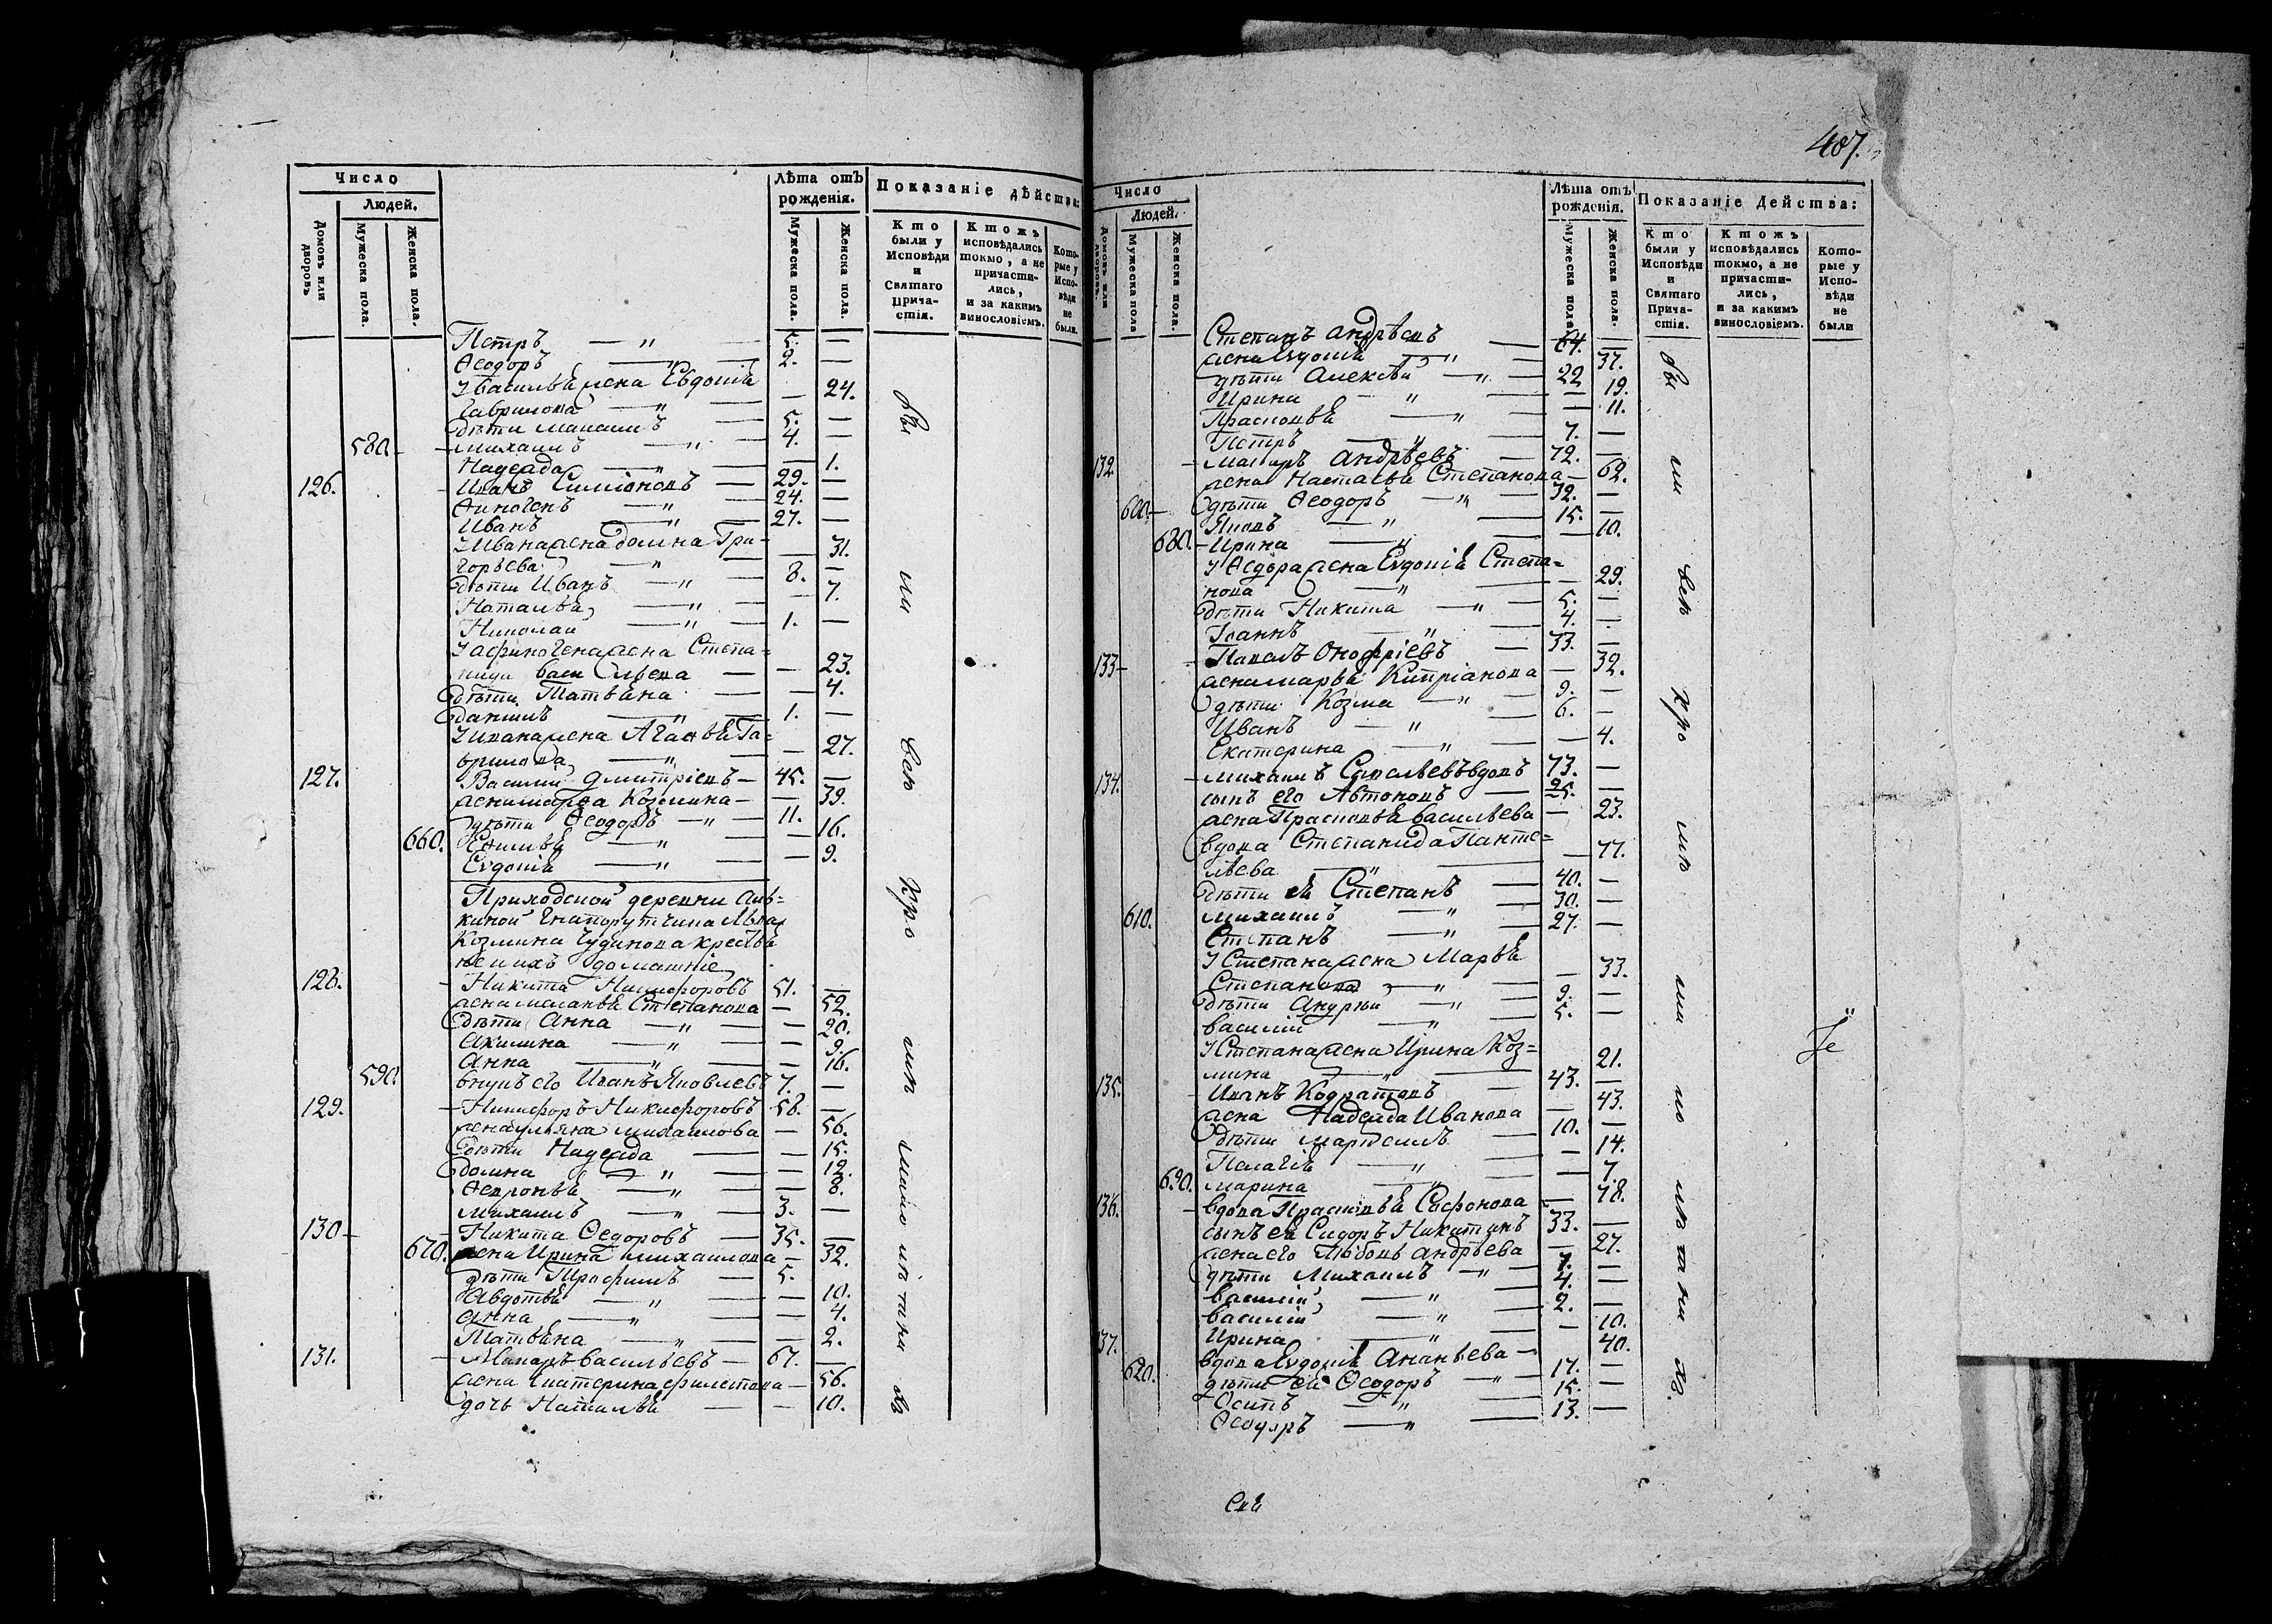 Число
Людей.
Домовъ или дворовъ
Мужеска пола.
Женска пола.
Лѣта отъ рожденія.
Мужеска пола.
Женска пола.
Показаніе дѣйства:
Кто были у Исповѣди и Святаго Прича-стія.
Ктожъ исповѣдались токмо, а не причасти-лись, и за какимъ винословіемъ.
Кото-рые у Испо-вѣди не были.
Петръ — " — 5. —
Ѳеодоръ — " — 2. —
У василья жена Евдокія
Гаврилова — " — — 24.
дѣти — 5. —
580. Михаилъ — " — 4. —
Надежда — " — — 1.
126. Иванъ Симіоновъ — 29. —
— " — 24. —
Иванъ — " — 27. —
У Ивана жена домна Гри-
горьева — " — — 31.
дѣти Иванъ — " — 8. —
Наталья — " — — 7.
Николай — " — 1. —
У афиногена жена Степа-
нида васильева — — 23.
дѣти Татьяна — — 4.
даниилъ — " — 1. —
У ивана жена Агафья Га-
врилова — " — — 27.
127. Василій Дмитріевъ — 45. —
жена марфа Козмина — — 39.
дѣти Ѳеодоръ — " — 11. —
660. — " — — 16.
Евдокія — " — — 9.
Приходской деревни
Козмина Чудинова крестья
не и ихъ домашніе
128. Никита Никифоровъ 51. —
жена маланья Степанова — 52.
дѣти Анна — " — — 20.
Акилина — " — — 9.
Анна — " — — 16.
590. внукъ его Иванъ Яковлевъ 7. —
129. Никифоръ Никифоровъ 58. —
жена ульяна михаилова — 56.
дѣти Надежда — — 15.
домна — " — — 12.
Ѳевронья — " — — 8.
Михаилъ — " — 3. —
130 Никита Ѳедоровъ — 35. —
670. жена Ирина михаилова — 32.
дѣти Трофимъ — 5. —
Авдотья — " — — 10.
анна — " — — 4.
Татьяна — " — — 2.
131. Макаръ васильевъ — 67. —
жена Екатерина — 56.
дочь Наталья — — 10.
407.
Число
Людей.
Домовъ или дворовъ.
Мужеска пола
Женска пола.
Лѣта отъ рожденія.
Мужеска пола.
Женска пола.
Показаніе Действа:
Кто были у Исповѣди и Святаго Прича-стія.
Ктожъ исповѣдались токмо, а не причасти-лись, и за какимъ винословіемъ.
Кото-рые у Испо-вѣди не были
Степанъ андрѣевъ — 64. —
жена Евдокія — " — — 37.
дѣти Алексѣй — " — 22 —
Ирина — " — — 19.
Прасковья — " — — 11.
Петръ — " — 7. —
132. Макаръ андрѣевъ — 72. —
жена Наталья Степанова — 62.
600. дѣти Ѳеодоръ — " — 32. —
Яковъ — " — 15. —
680. Ирина — " — — 10.
У Ѳедора жена Евдокія Степа-
нова — " — — 29.
дѣти Никита — " — 5. —
Іоаннъ — " — 4. —
133 Павелъ Онофріевъ — 33. —
жена марья Кипріанова — 32.
дѣти Козма — " — 9. —
Иванъ — " — 6. —
Екатерина — " — — 4.
134. михаилъ Савельевъ вдовъ 73. —
сынъ его Автономъ — 25. —
жена Прасковья васильева — 23.
вдова Степанида Панте-
лѣева — " — — 77.
дѣти ея Степанъ — 40. —
610. михаилъ — " — 30. —
Степанъ — " — 27. —
У Степана жена Марья
Степанова — " — — 33.
дѣти Андрѣй — " — 9. —
василій — " — 5. —
У Степана жена Ирина Коз-
мина — " — — 21.
135. Иванъ Кодратовъ — 43. —
жена Надежда Иванова — 43.
дѣти — 10. —
Пелагія — " — — 14.
690. марина — " — — 7.
136. вдова Прасковья Софонова — 78.
сынъ ея Сидоръ Никитинъ 33. —
жена его Любовь андрѣева — 27.
дѣти Михаилъ — " — 7. —
василій — " — 4. —
василій — " — 2. —
Ирина — " — — 10.
137. вдова Евдокія Ананьева — 40.
620. дѣти ея Ѳеодоръ — " — 17. —
Осипъ — " — 15. —
Ѳеодоръ — " — 13. —